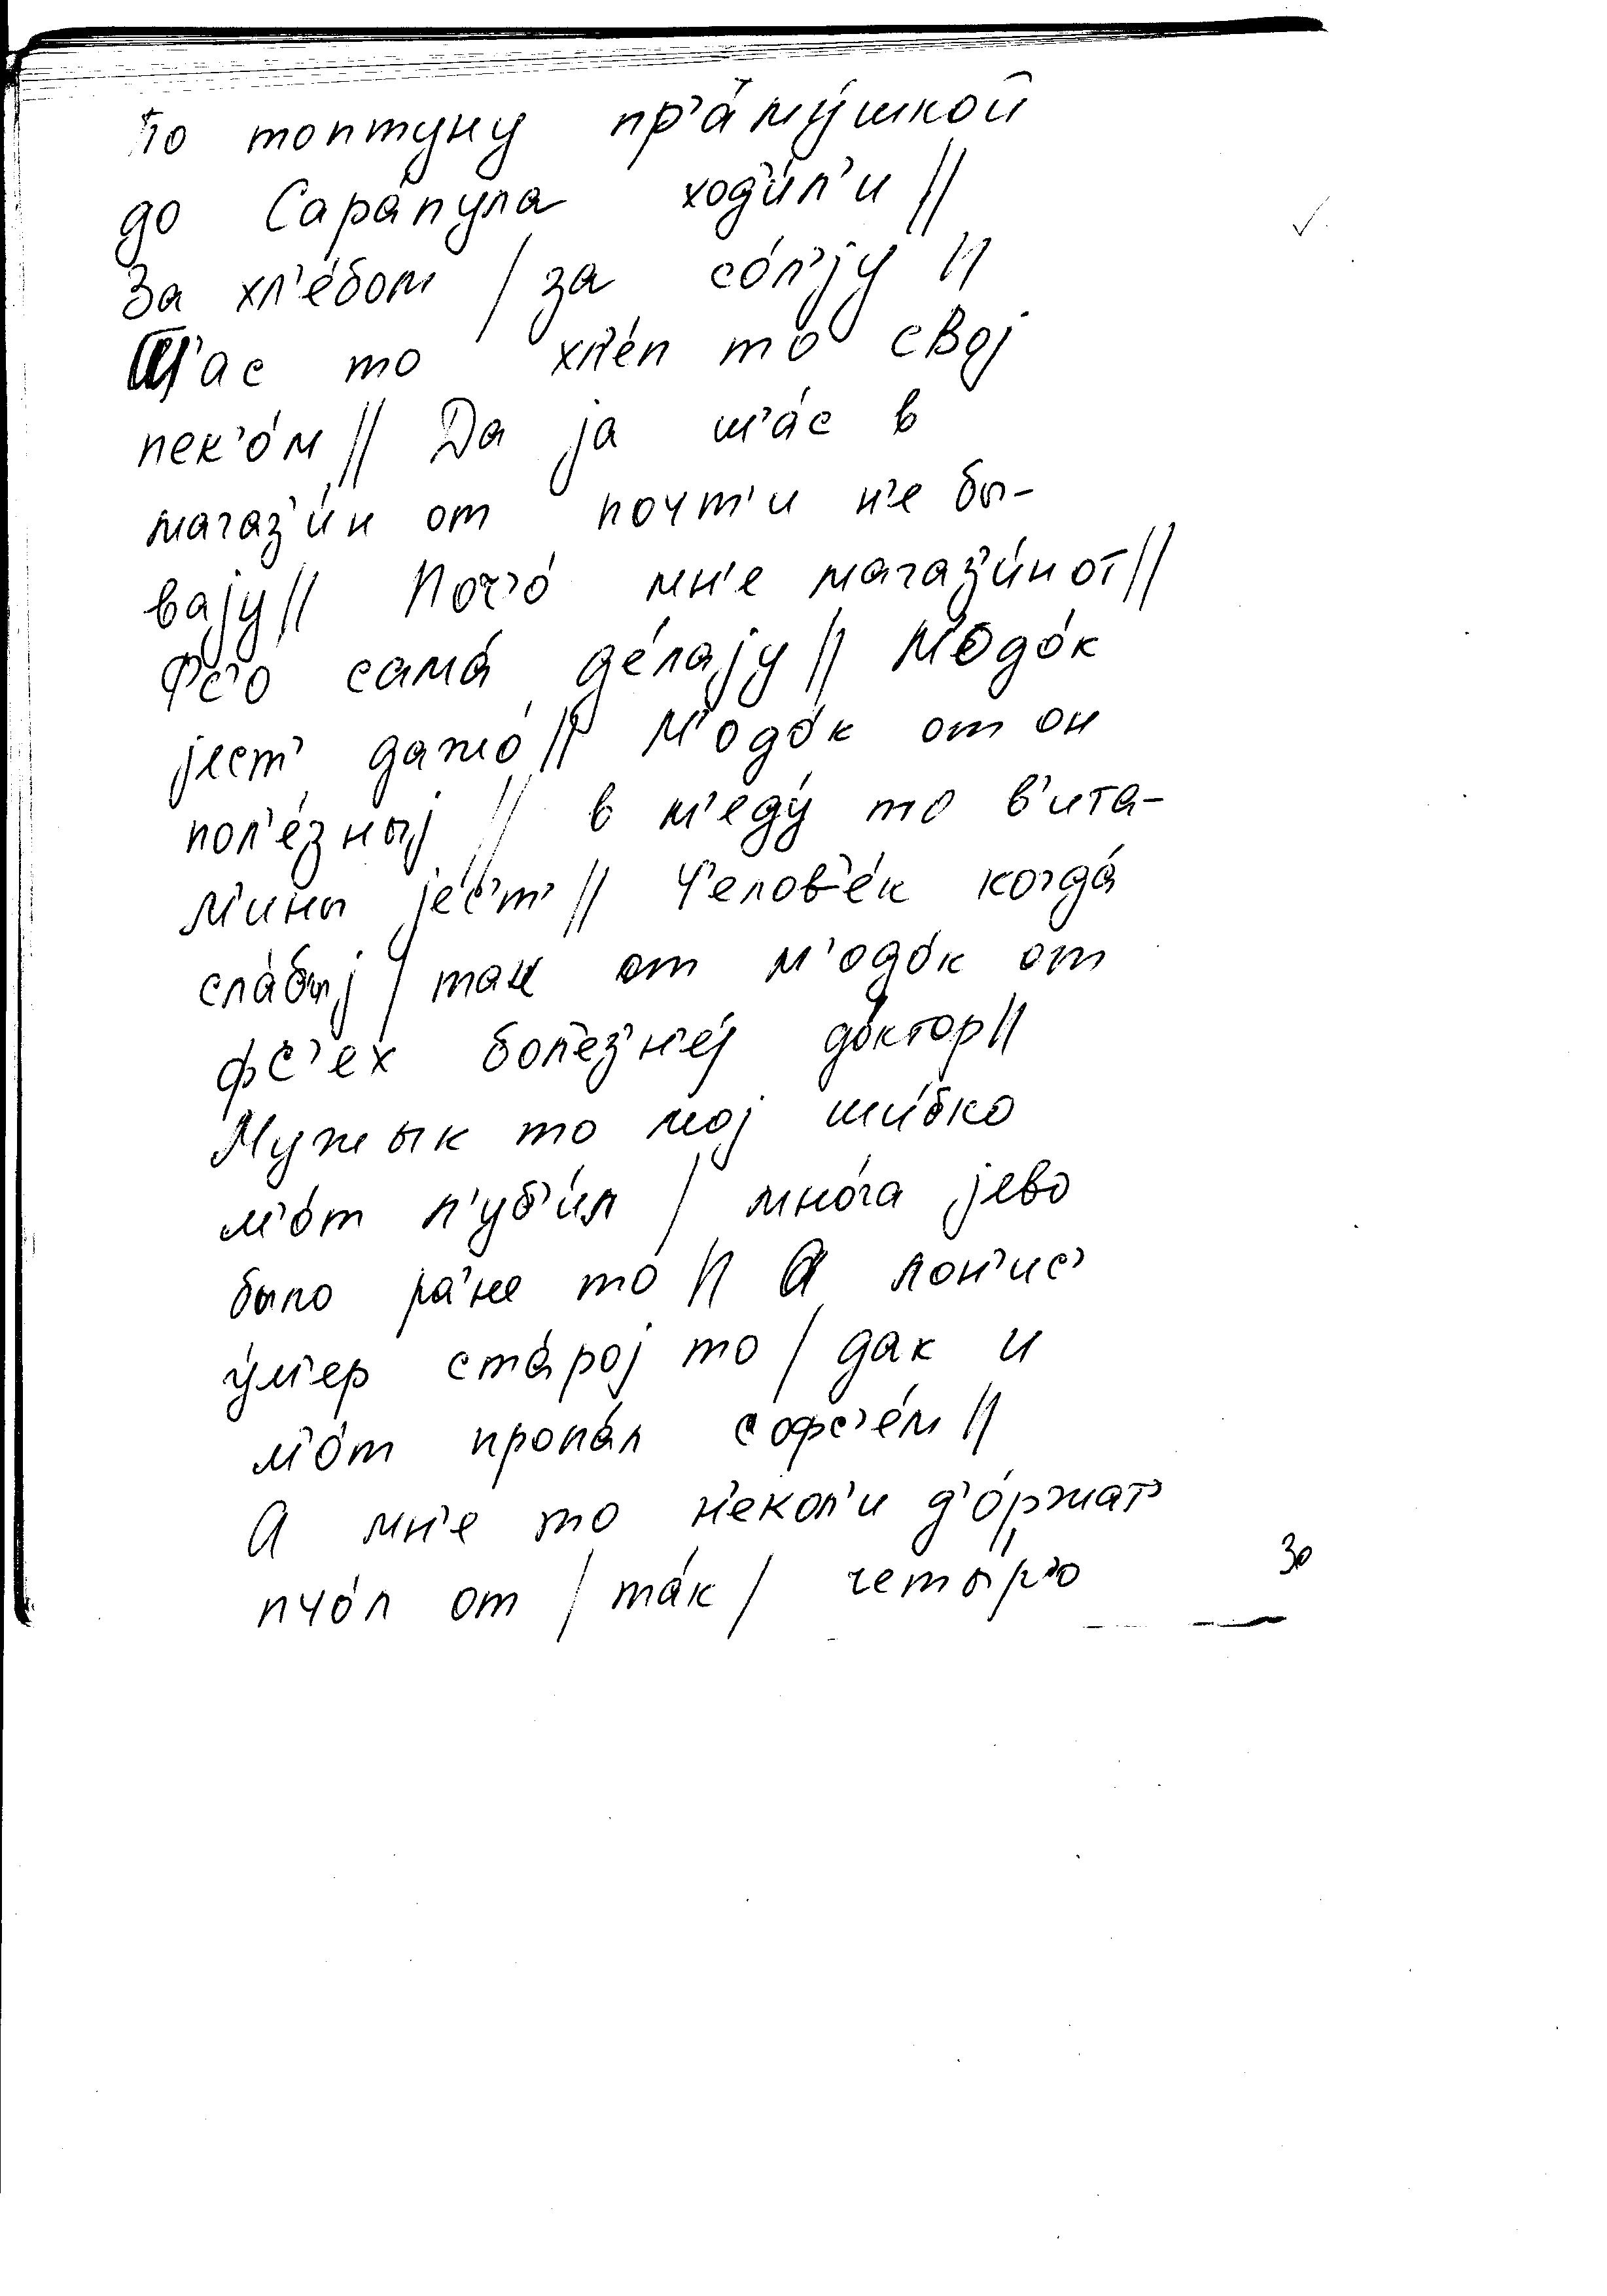 По топтуну пр'а́му́шкой
до Сара́пула ход'и́л'и //
За хл'е́бом / за со́л'jу //
Ш'ас то хл'е́п то своj
пек'о́м // Да jа ш'а́с в
магаз'и́н от почт'и н'е бы-
ваjу // Поч'о́ мн'е магаз'и́н от //
Фс'о сама́ де́лаjу // М'одо́к
jест' дажо́ // М'одо́к от он
пол'е́зныj // в м'еду́ то в'ита-
м'ины jе́с'т' // Ч'елов'е́к когда́
сла́быj / так от м'одо́к от
фс'ех бол'ез'н'е́j до́ктор //
Мужык то моj ши́бко
м'о́т л'уб'и́л / мно́га jево
было ра́'не то // А лон'ис'
у́м'ер ста́роj то / дак и
м'о́т пропа́л софс'е́м //
А мн'е то н'екол'и д'о́ржат'
пчо́л от / та́к / четы́р'о
30